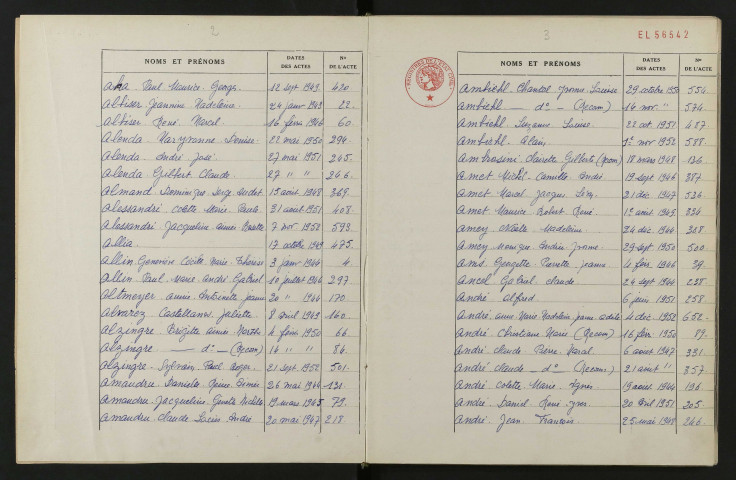 2
NOMS ET PRÉNOMS DATES DES ACTES Nos DE L'ACTE
Paul Maurice Georges 12 sept 1949 420
Altiser Jeannine Madeleine 24 janv 1949 22
Altiser René Marcel 16 février 1946 60
Alenda Maryvonne Denise 22 mai 1950 294
Alenda André José 27 mai 1951 245
Alenda Gilbert Claude 27 " " 246
Almand Dominique Serge 1er août 1948 369
Alessandri Colette Marie 31 août 1951 408
Alessandri Jacqueline Aimée 7 nov 1952 593
Allia 17 octobre 1949 475
Allin Geneviève Cécile Marie Thérèse 3 janv 1944 4
Allin Paul Marie André Gabriel 10 juillet 1946 297
Altmeyer Annie Antoinette Jeanne 20 " 1944 170
Alvarez Castellanos Juliette 8 avril 1949 160
Alzingre Brigitte Aimée Marthe 4 février 1950 66
Alzingre — do — (Recon) 14 " " 84
Alzingre Sylvain Paul Roger 21 sept 1952 501
Amaudru Danielle Denise 26 mai 1944 131
Amaudru Jacqueline 19 mars 1945 79
Amaudru Claude Lucien André 20 mai 1947 218
3
EL56642
NOMS ET PRÉNOMS DATES DES ACTES Nos DE L'ACTE
Ambiehl Chantal Yvonne Louise 29 octobre 1950 554
Ambiehl — do — (Recon) 14 nov " 574
Ambiehl Suzanne Louise 22 oct 1951 487
Ambiehl Alain 1er nov 1952 588
Ambrosini Claudette Gilberte (Recon) 18 mars 1948 136
Amet Michel Camille André 19 sept 1946 387
Amet Marcel Jacques 21 déc 1947 536
Amet Maurice Robert René 1er août 1949 334
Amey Noëlle Madeleine 24 déc 1944 308
Amey Monique Andrée Yvonne 29 sept 1950 500
Ams Georgette Pierrette Jeanne 4 févr 1946 39
Ancel Gabriel Claude 24 sept 1944 238
André Alfred 6 juin 1951 258
André Anne Marie Madeleine Jeanne 4 déc 1952 652
André Christiane Marie (Recon) 16 févr 1950 89
André Claude Pierre Marcel 6 août 1947 331
André Claude — do — (Recon) 21 août " 357
André Colette Marie Agnès 19 août 1944 196
André Daniel René Yves 20 avril 1951 205
André Jean François 25 mai 1948 246